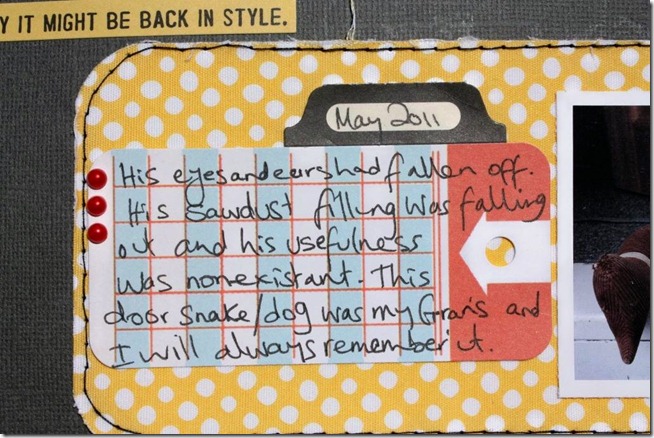 Y IT MIGHT BE BACK IN STYLE.
May 2011
His eyes and ears had fallen off.
His sawdust filling was falling
out and his usefulness
was nonexistant. This
door snake/dog was my Gran's and
I will always remember it.